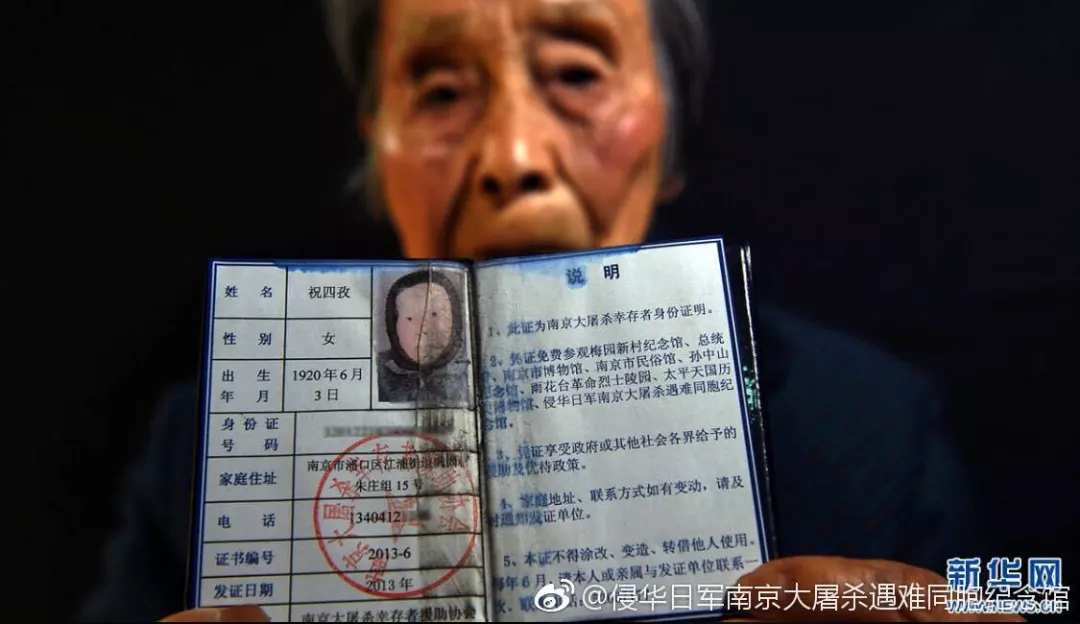 姓 名 祝四孜
性 别 女
出 生
年 月
1920年6月
3日
身份证
号 码
家庭住址
南京市浦口区江浦街道
朱庄组15号
电 话 1340412
证书编号 2013-6
发证日期 2013年
南京大屠杀幸存者援助协会
说 明
1、此证为南京大屠杀幸存者身份证明。
2、凭证免费参观梅园新村纪念馆、总统
、南京市博物馆、南京市民俗馆、孙中山
念馆、雨花台革命烈士陵园、太平天国历
博物馆、侵华日军南京大屠杀遇难同胞纪
念馆。
3、凭证享受政府或其他社会各界给予的
援助及优待政策。
4、家庭地址、联系方式如有变动，请及
时通知发证单位。
5、本证不得涂改、变造、转借他人使用。
每年6月，请本人或亲属与发证单位联系一
次，联系
@侵华日军南京大屠杀遇难同胞纪念馆
新华网
WWW.NEWS.CN